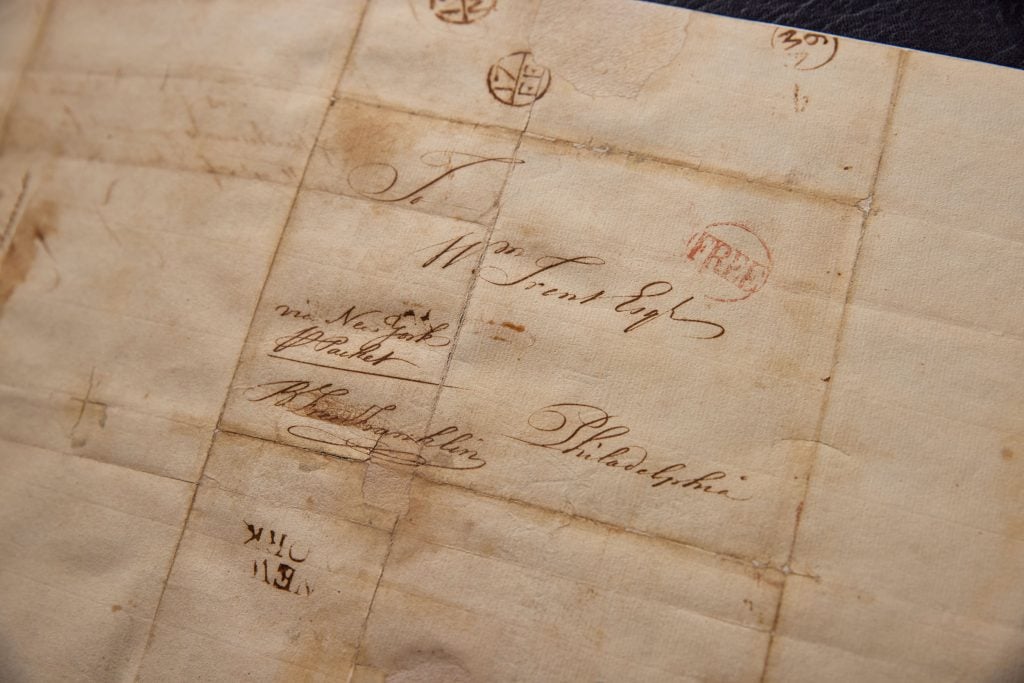 17 FE
To
FREE
Wm Trent Esqr
via New York
Pr Packet
B Free Franklin
Philadelphia
NEW
YORK